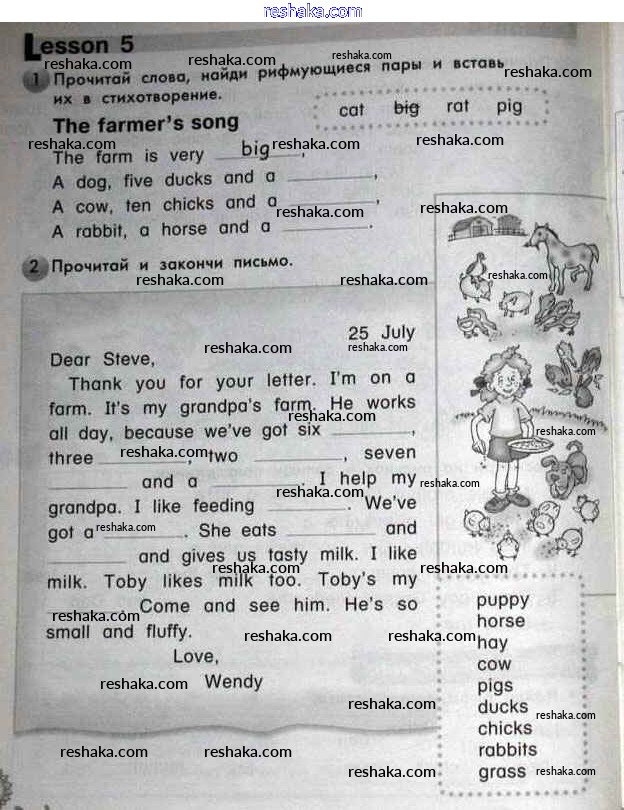 reshaka.com
Lesson 5
reshaka.com reshaka.com reshaka.com
1 Прочитай слова, найди рифмующиеся пары и вставь reshaka.com
их в стихотворение.
cat big rat pig
The farmer's song
reshaka.com reshaka.com reshaka.com
The farm is very big,
A dog, five ducks and a ________,
A cow, ten chicks and a ________,
reshaka.com reshaka.com
A rabbit, a horse and a ________.
2 Прочитай и закончи письмо.
reshaka.com reshaka.com reshaka.com
25 July
reshaka.com reshaka.com
Dear Steve,
Thank you for your letter. I'm on a
farm. It's my grandpa's farm. He works
reshaka.com
all day, because we've got six ________,
reshaka.com
three ________, two ________, seven
reshaka.com
________ and a ________. I help my
reshaka.com
grandpa. I like feeding ________. We've
reshaka.com
got a ________. She eats ________ and
reshaka.com
________ and gives us tasty milk. I like
reshaka.com reshaka.com
milk. Toby likes milk too. Toby's my
________. Come and see him. He's so
reshaka.com
small and fluffy.
reshaka.com reshaka.com
Love,
Wendy
reshaka.com
puppy
horse
hay
cow
pigs
ducks
chicks
rabbits
grass
reshaka.com
reshaka.com
reshaka.com reshaka.com
reshaka.com reshaka.com